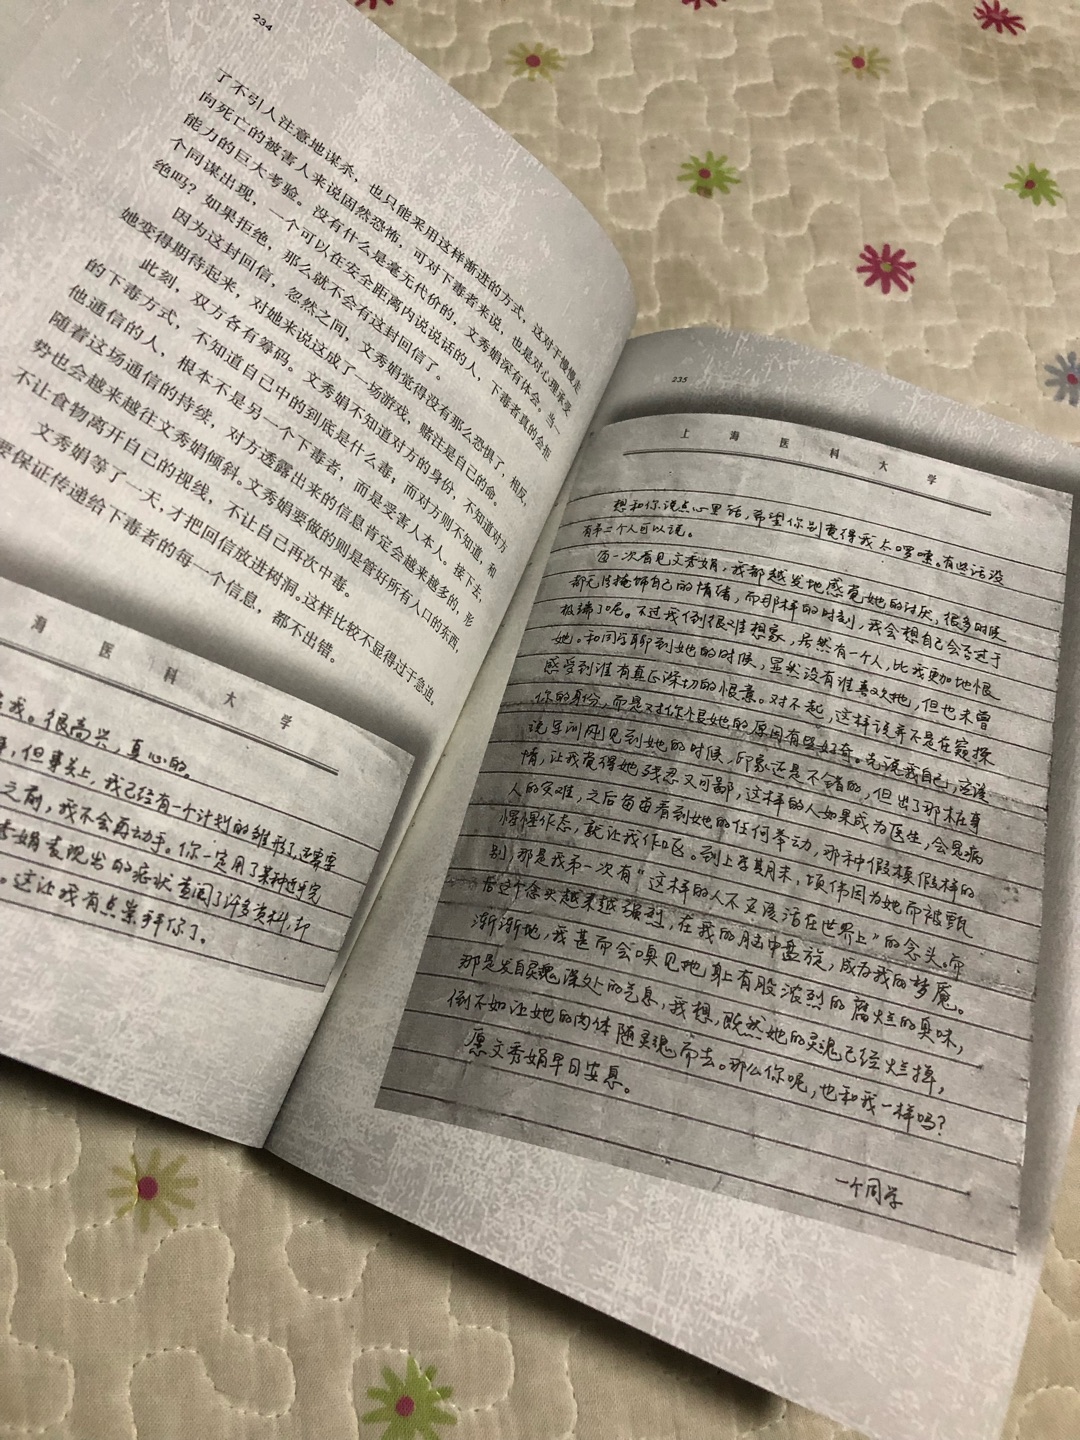 234
了不引人注意地谋杀，也只能采用这样渐进的方式，这对于慢慢走
向死亡的被害人来说固然恐怖，可对下毒者来说，也是对心理承受
能力的巨大考验。没有什么是毫无代价的，文秀娟深有体会。当一
个同谋出现，一个可以在安全距离内说说话的人，下毒者真的会拒
绝吗？如果拒绝，那么就不会有这封回信了。
因为这封回信，忽然之间，文秀娟觉得没有那么恐惧了，相反，
她变得期待起来，对她来说这成了一场游戏，赌注是自己的命。
此刻，双方各有筹码。文秀娟不知道对方的身份，不知道对方
的下毒方式，不知道自己中的到底是什么毒；而对方则不知道，和
他通信的人，根本不是另一个下毒者，而是受害人本人。接下去，
随着这场通信的持续，对方透露出来的信息肯定会越来越多的，形
势也会越来越往文秀娟倾斜。文秀娟要做的则是管好所有入口的东西，
不让食物离开自己的视线，不让自己再次中毒。
文秀娟等了一天，才把回信放进树洞。这样比较不显得过于急迫，
要保证传递给下毒者的每一个信息，都不出错。
海医科大学
我。很高兴，真心的。
，但事关上，我已经有一个计划的雏形了，还需要
之前，我不会再动手。你一定用了某种近乎完
秀娟表现出的症状查阅了许多资料，却
。这让我有点崇拜你了。
235
上海医科大学
想和你说点心里话，希望你别觉得我太啰嗦。有些话没
有第二个人可以说。
每一次看见文秀娟，我都越发地感觉她的讨厌，很多时候
都无法掩饰自己的情绪，而那样的时刻，我会想自己会否过于
极端了呢。不过我倒很难想象，居然有一个人，比我更加地恨
她。和同学聊到她的时候，显然没有谁喜欢她，但也未曾
感受到谁有真正深切的恨意。对不起，这样说并不是在窥探
你的身份，而是对你恨她的原因有些好奇。先说我自己，应该
说军训刚见到她的时候，印象还是不错的，但出了那桩事
情，让我觉得她残忍又可鄙，这样的人如果成为医生，会是病
人的灾难，之后每每看到她的任何举动，那种假模假样的
惺惺作态，就让我作呕。到上学期末，项伟因为她而被甄
别，那是我第一次有“这样的人不应该活在世界上”的念头。而
后这个念头越来越强烈，在我的脑中盘旋，成为我的梦魇。
渐渐地，我甚而会嗅见她身上有股浓烈的腐烂的臭味，
那是发自灵魂深处的气息，我想，既然她的灵魂已经烂掉，
倒不如让她的肉体随灵魂而去。那么你呢，也和我一样吗？
愿文秀娟早日安息。
一个同学